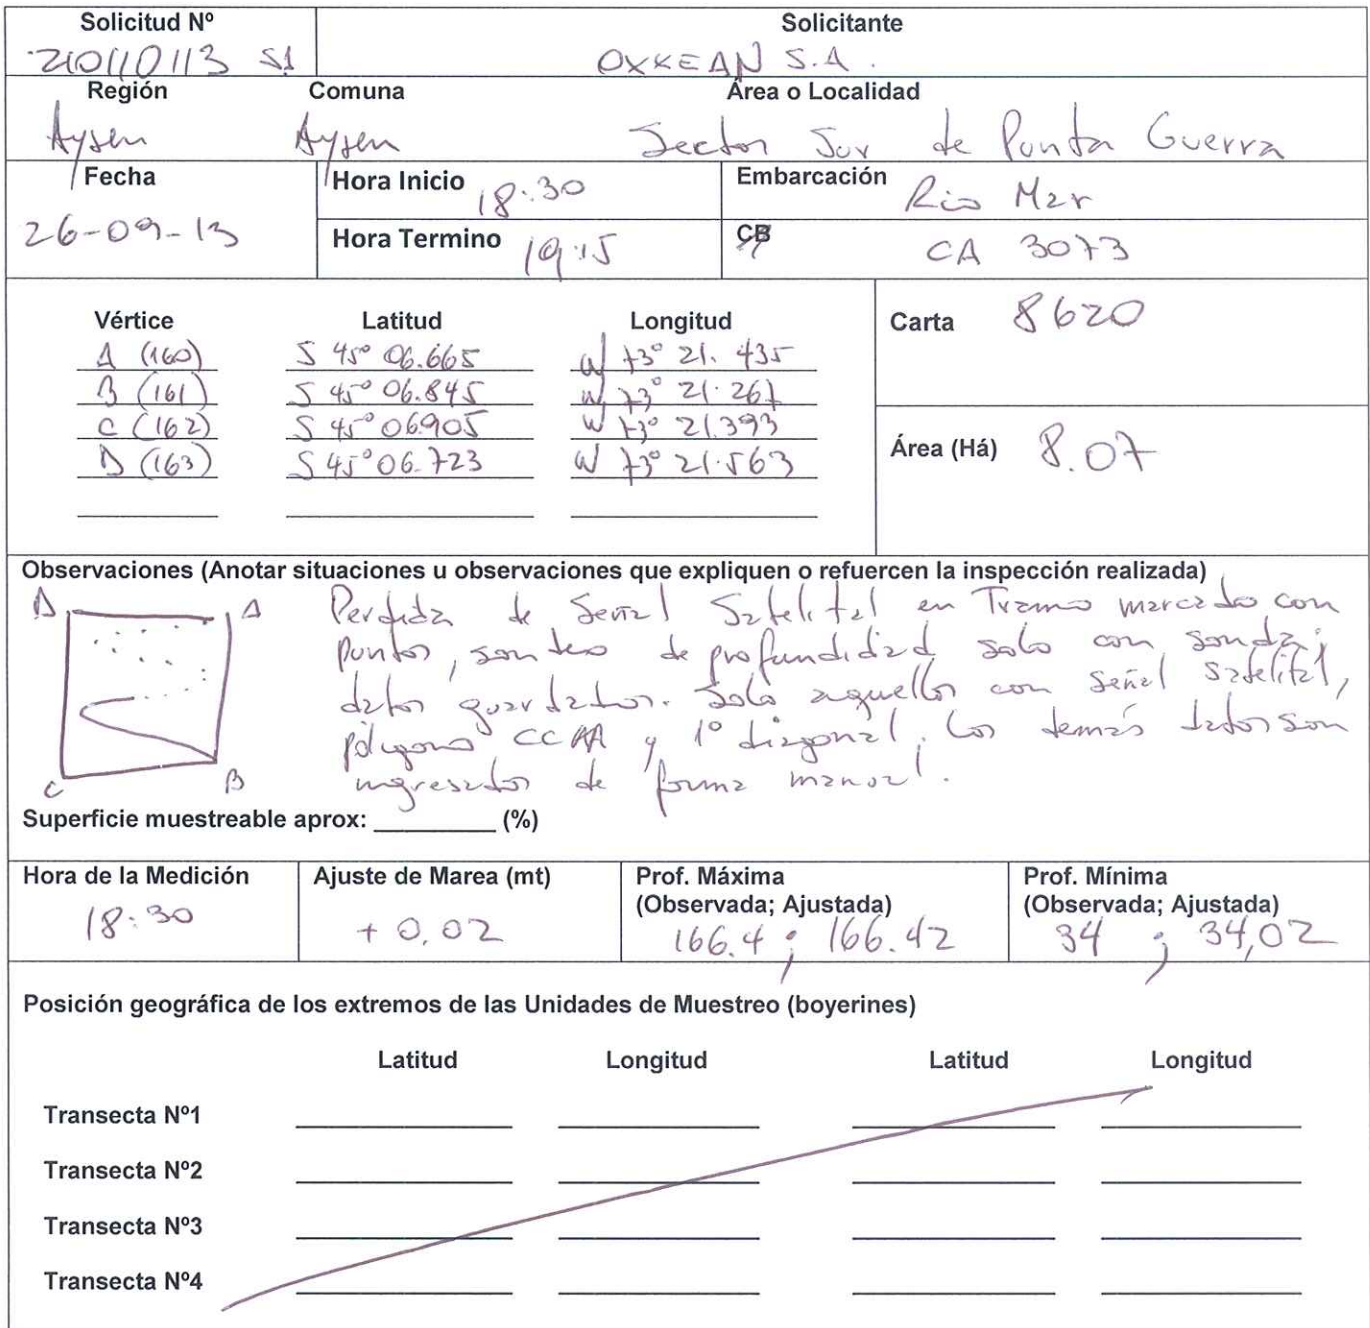 Solicitud Nº Solicitante
210110113 S1 OXXEAN S.A.
Región Comuna Área o Localidad
Aysen Aysen Sector Sur de Punta Guerra
Fecha Hora Inicio 18:30 Embarcación Rio Mar
26-09-13 Hora Termino 19:15 CB CA 3073
Vértice Latitud Longitud Carta 8620
A (160) S 45º 06.665 W 73º 21.435
B (161) S 45º 06.845 W 73º 21.267
C (162) S 45º 06.905 W 73º 21.393
D (163) S 45º 06.723 W 73º 21.563
Área (Há) 8.07
Observaciones (Anotar situaciones u observaciones que expliquen o refuercen la inspección realizada)
D A
C B
Perdida de Señal Satelital en Tramo marcado con
puntos, sonteo de profundidad solo con sonda;
datos guardados. Solo aquellos con señal satelital,
poligono CCAA y 1º diagonal. Los demás datos son
ingresados de forma manual.
Superficie muestreable aprox: (%)
Hora de la Medición Ajuste de Marea (mt) Prof. Máxima Prof. Mínima
(Observada; Ajustada) (Observada; Ajustada)
18:30 + 0.02 166.4 ; 166.42 34 ; 34,02
Posición geográfica de los extremos de las Unidades de Muestreo (boyerines)
Latitud Longitud Latitud Longitud
Transecta Nº1
Transecta Nº2
Transecta Nº3
Transecta Nº4